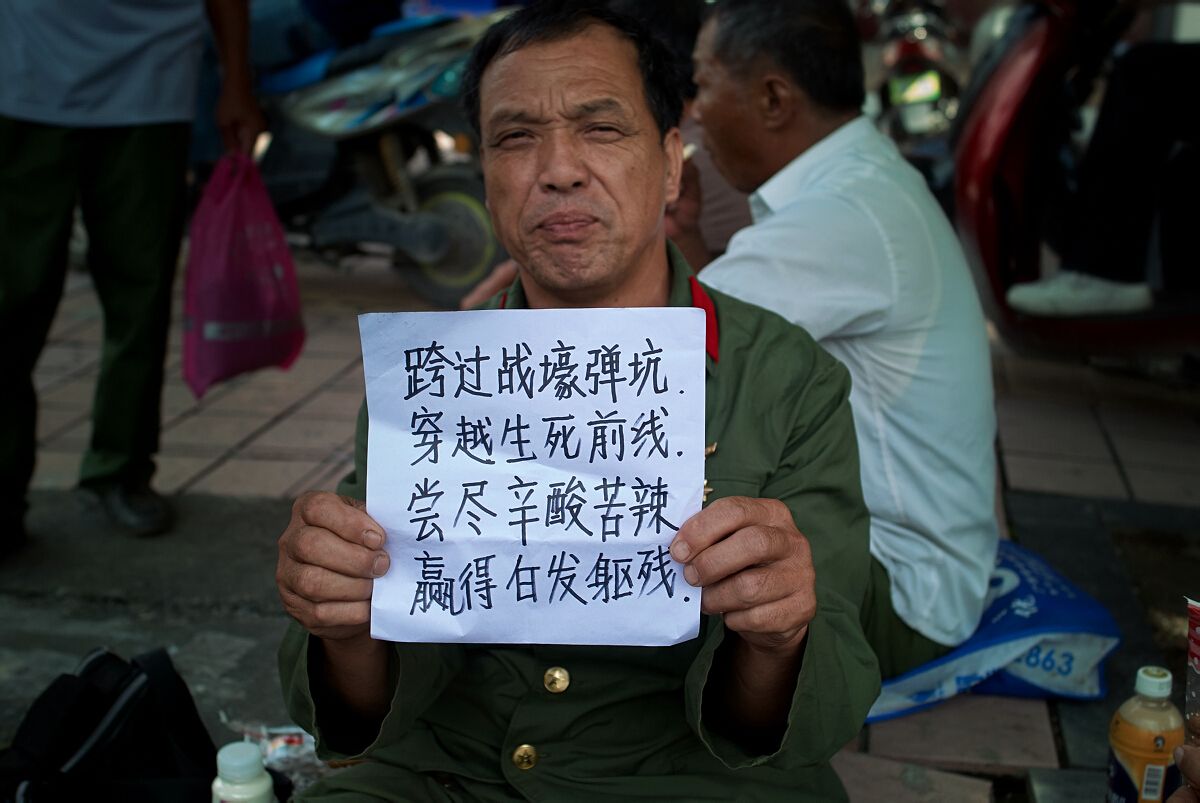 跨过战壕弹坑.
穿越生死前线.
尝尽辛酸苦辣
赢得白发躯残.
2863